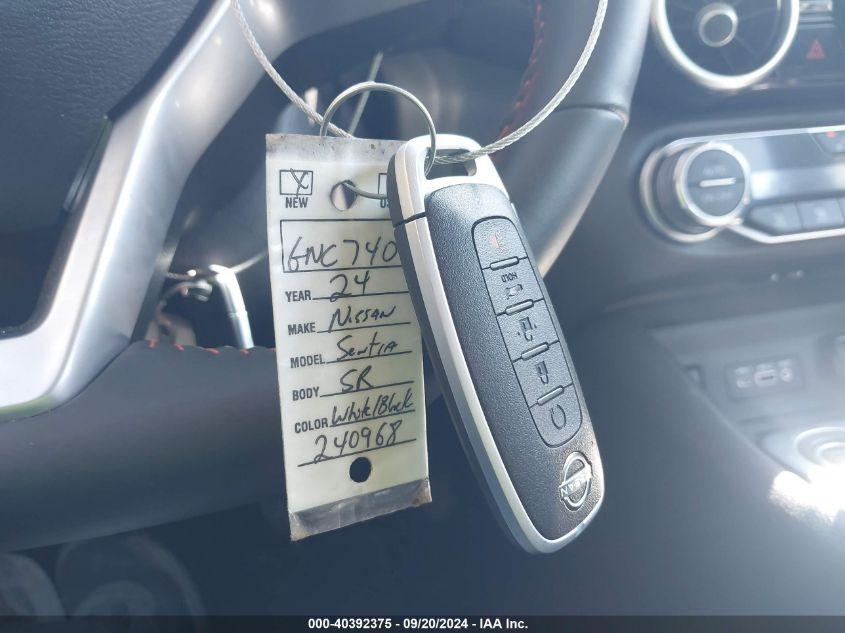 X
NEW
GNC740
YEAR 24
MAKE Nissan
MODEL Sentra
BODY SR
COLOR White/Black
240968
HOLD
NISSAN
000-40392375 - 09/20/2024 - IAA Inc.